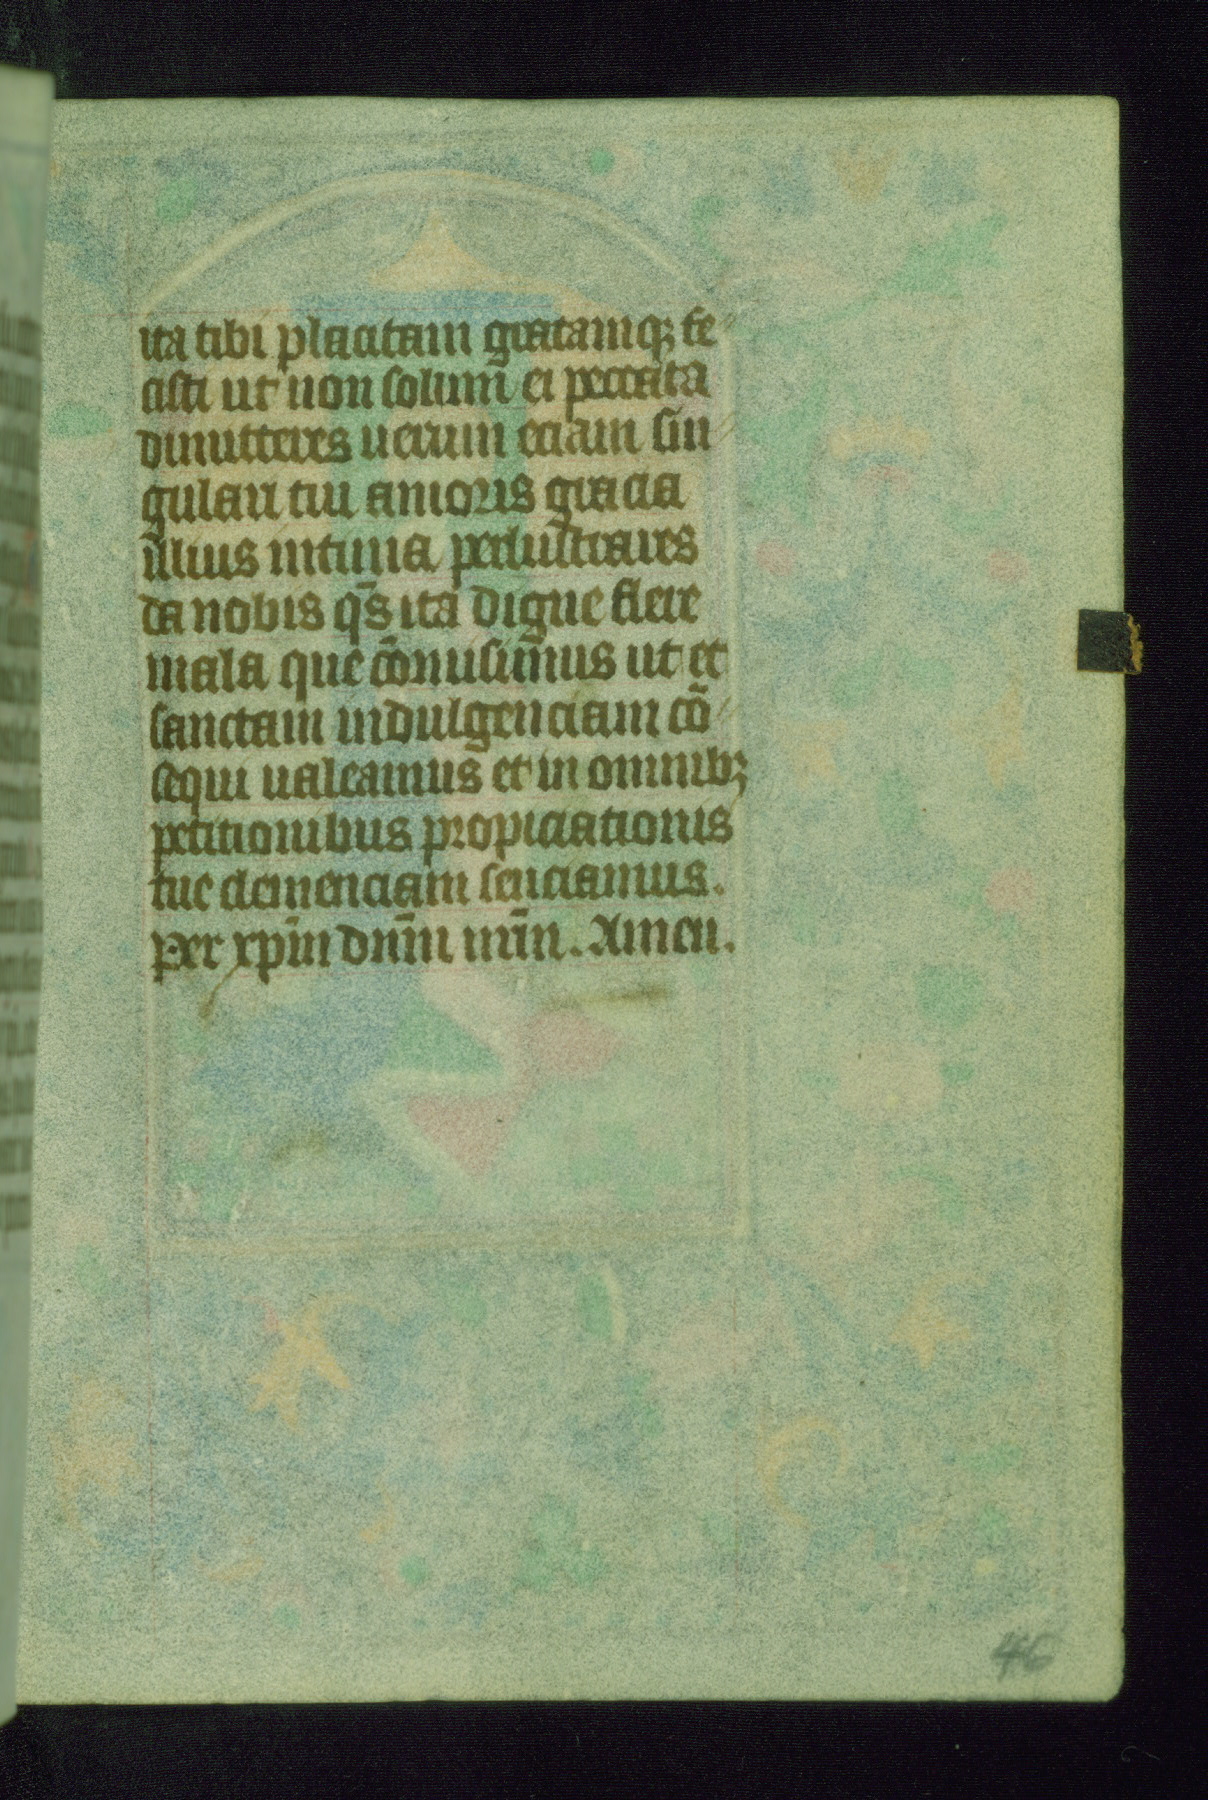 ita tibi placitam gratamq; fe
cisti ut non solum̄ ei peccata
dimitteres uerum eciam sin
gulari tui amoris gracia
illius intima perlustrares
da nobis q̄s ita digne flere
mala que cōmisim̄us ut et
sanctam indulgenciam cō
sequi ualeamus et in omnibꝫ
petitionibus propiciationis
tue clemenciam senciamus.
Per xp̄m dn̄m nr̄m. Amen.
46